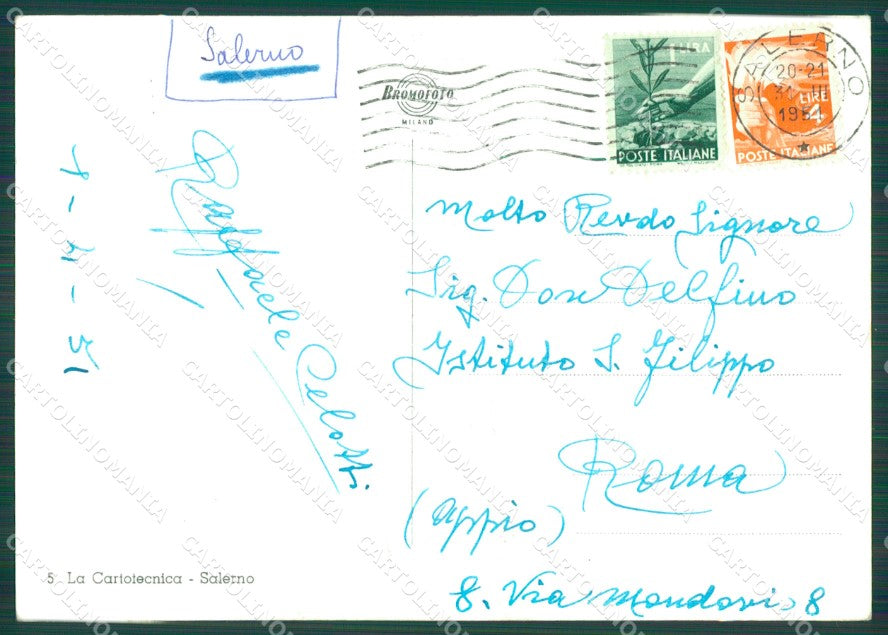 Salerno
BROMOFOTO
MILANO
1 LIRA
POSTE ITALIANE
LIRE
4
POSTE ITALIANE
SALERNO
20-21
III
Molto Revdo Signore
Sig. Don Delfino
Istituto S. Filippo
Roma
(Appio)
8. Via Mondovi, 8
Raffaele Celotti
1-4-51
5 La Cartotecnica - Salerno
CARTOLINOMANIA